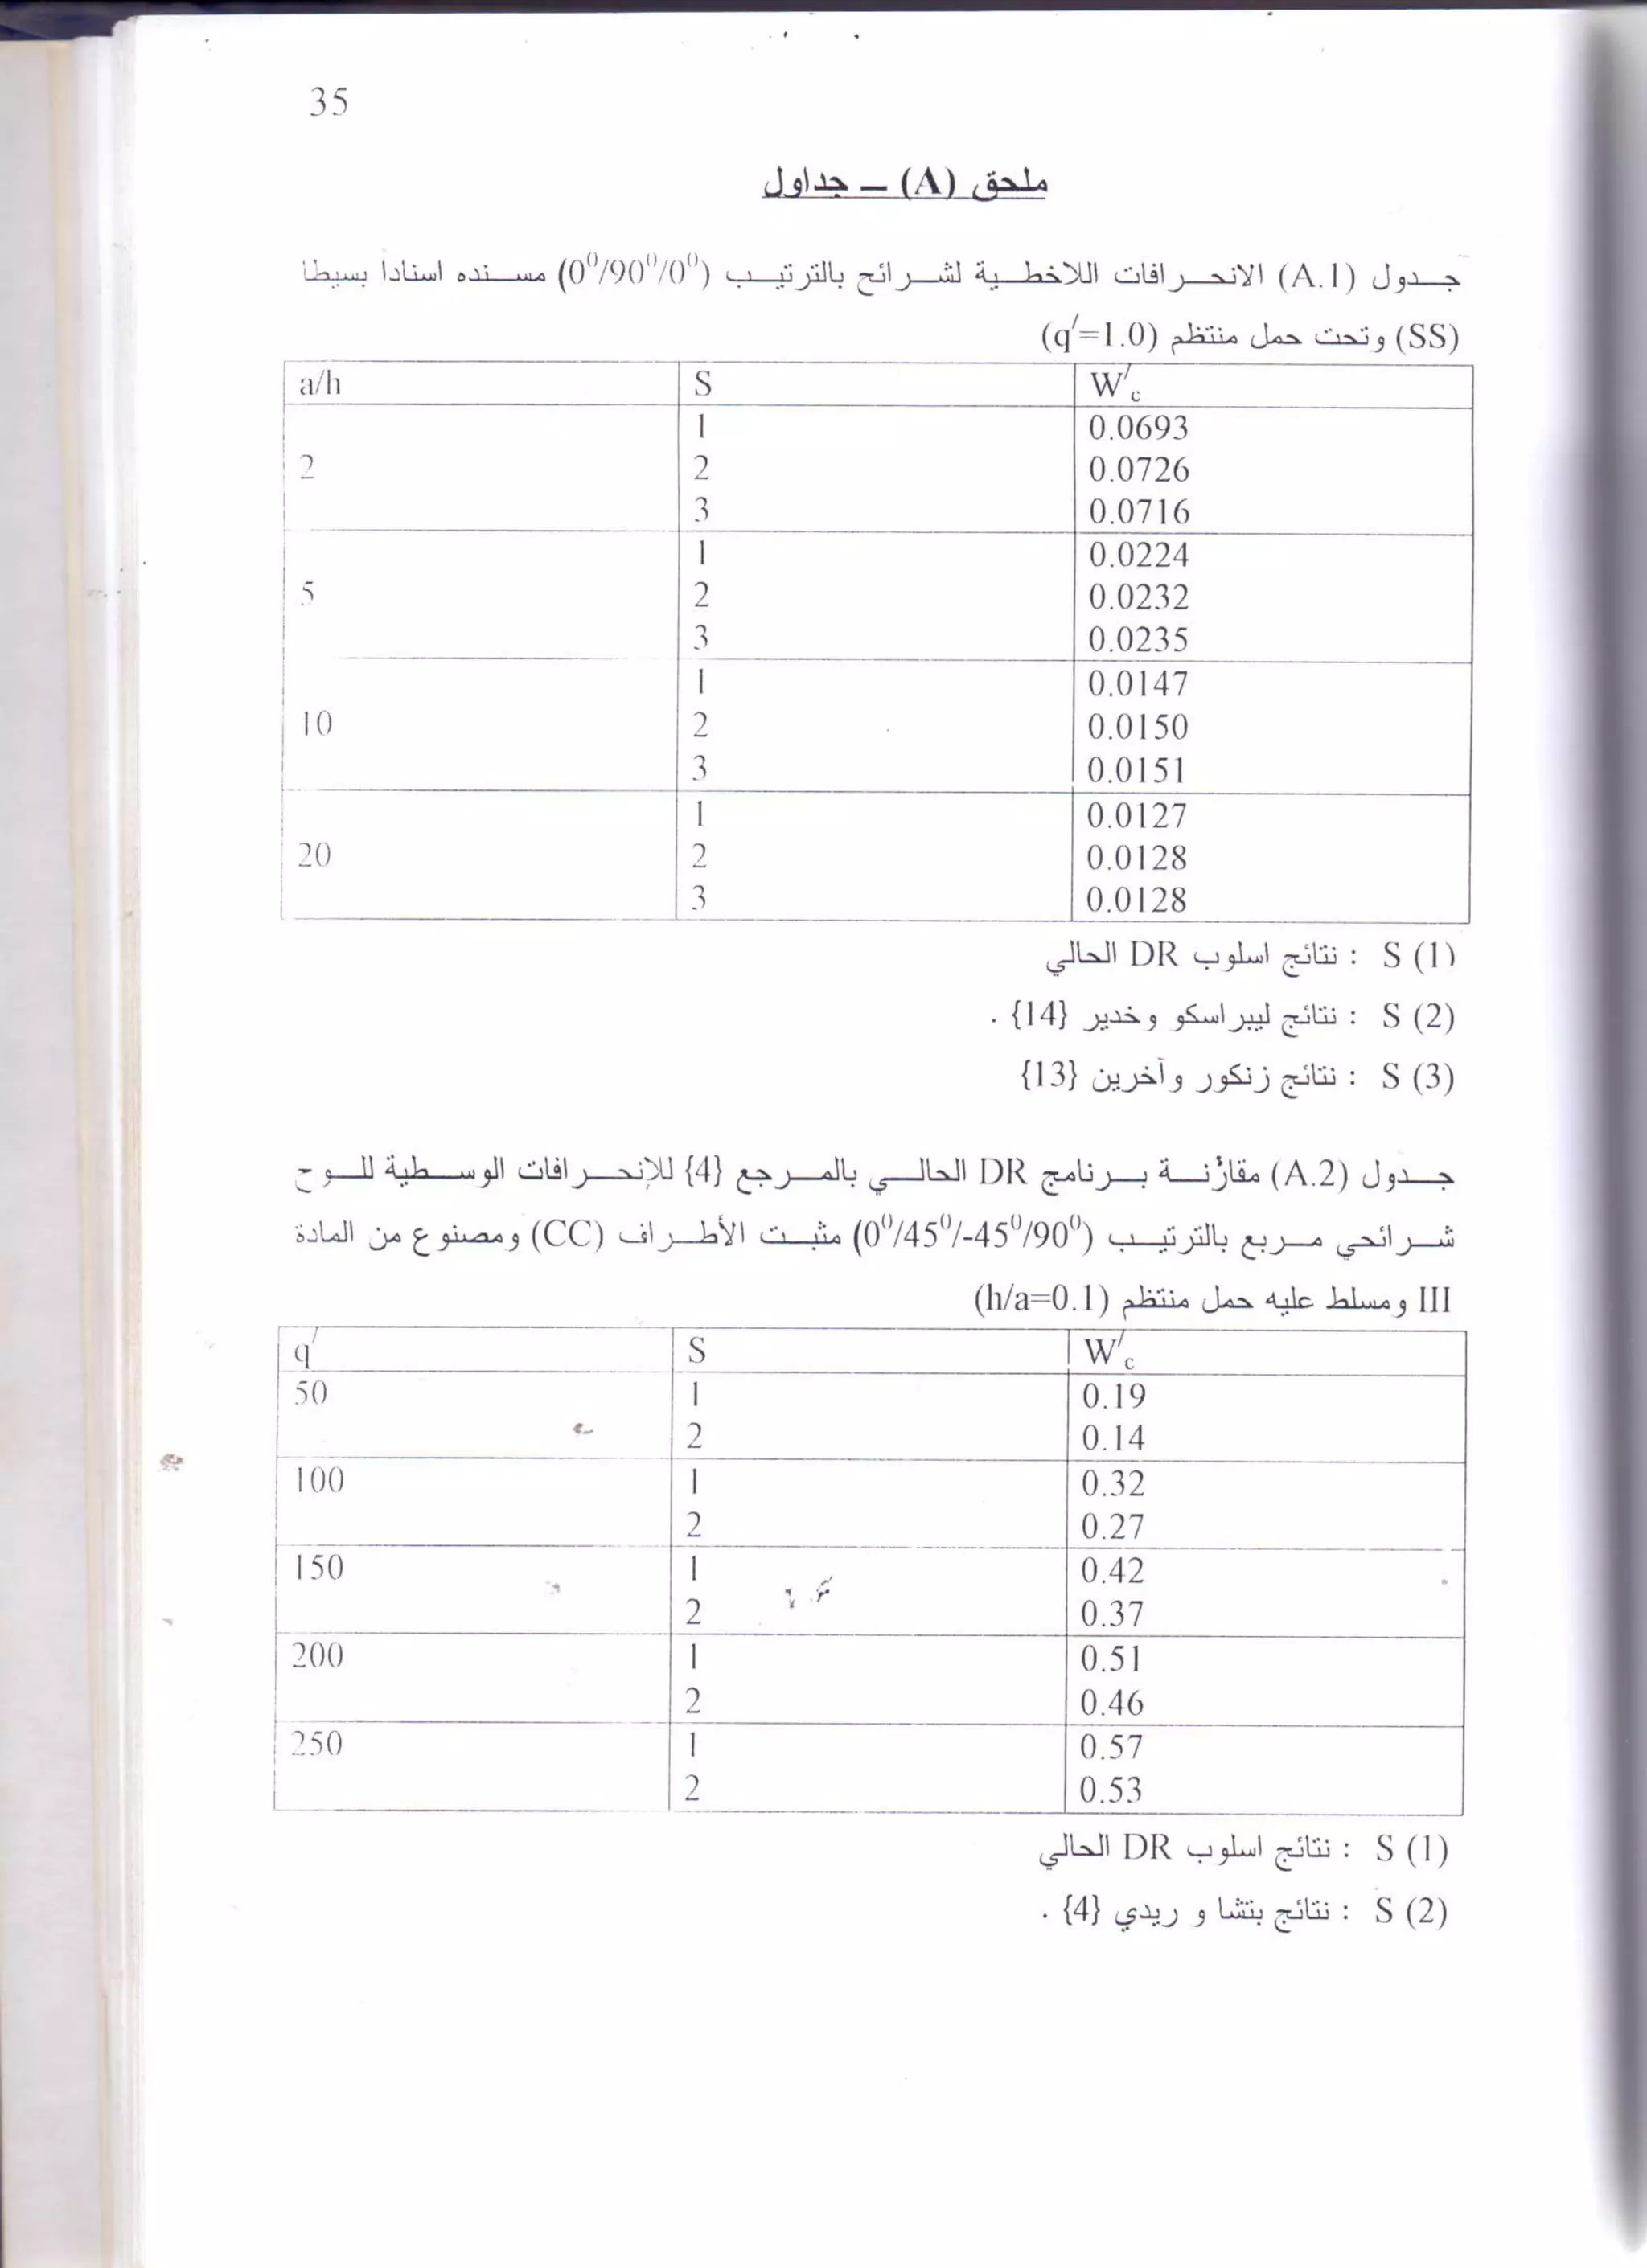 35
ملحق (A) – جداول
جدول (A.1) الانحرافات اللاخطية لشرائح بالترتيب (0⁰/90⁰/0⁰) مسنده اسنادا بسيطا
(SS) وتحت حمل منتظم (q′=1.0)
a/h S W′c
1 0.0693
2 2 0.0726
3 0.0716
1 0.0224
5 2 0.0232
3 0.0235
1 0.0147
10 2 0.0150
3 0.0151
1 0.0127
20 2 0.0128
3 0.0128
S (1) : نتائج اسلوب DR الحالي
S (2) : نتائج ليبراسكو وخدير {14} .
S (3) : نتائج زنكور وآخرين {13}
جدول (A.2) مقارنة برنامج DR الحالي بالمرجع {4} للإنحرافات الوسطية للوح
شرائحي مربع بالترتيب (0⁰/45⁰/-45⁰/90⁰) مثبت الأطراف (CC) ومصنوع من المادة
III ومسلط عليه حمل منتظم (h/a=0.1)
q′ S W′c
50 1 0.19
2 0.14
100 1 0.32
2 0.27
150 1 0.42
2 0.37
200 1 0.51
2 0.46
250 1 0.57
2 0.53
S (1) : نتائج اسلوب DR الحالي
S (2) : نتائج بتشا و ريدي {4} .